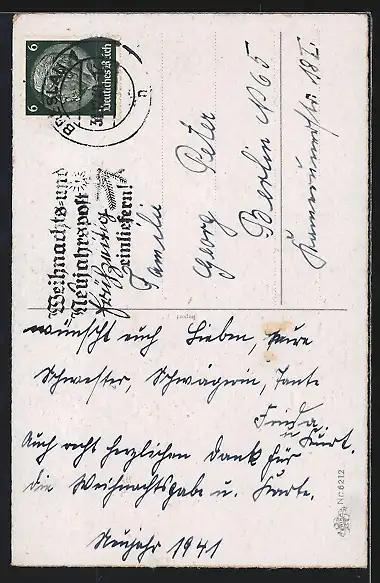 6 6
Deutsches Reich
BRESLAU
Weihnachts- und
Neujahrspost
frühzeitig
einliefern!
Familie
Georg Peter
Berlin N 65
Kamerunerstr. 18 I.
Import
wünscht euch Lieben, eure
Schwester, Schwägerin, Tante
Frieda
u. Kurt.
Auch recht herzlichen Dank für
die Weihnachtsgabe u. Karte.
Neujahr 1941
Nr. 6212